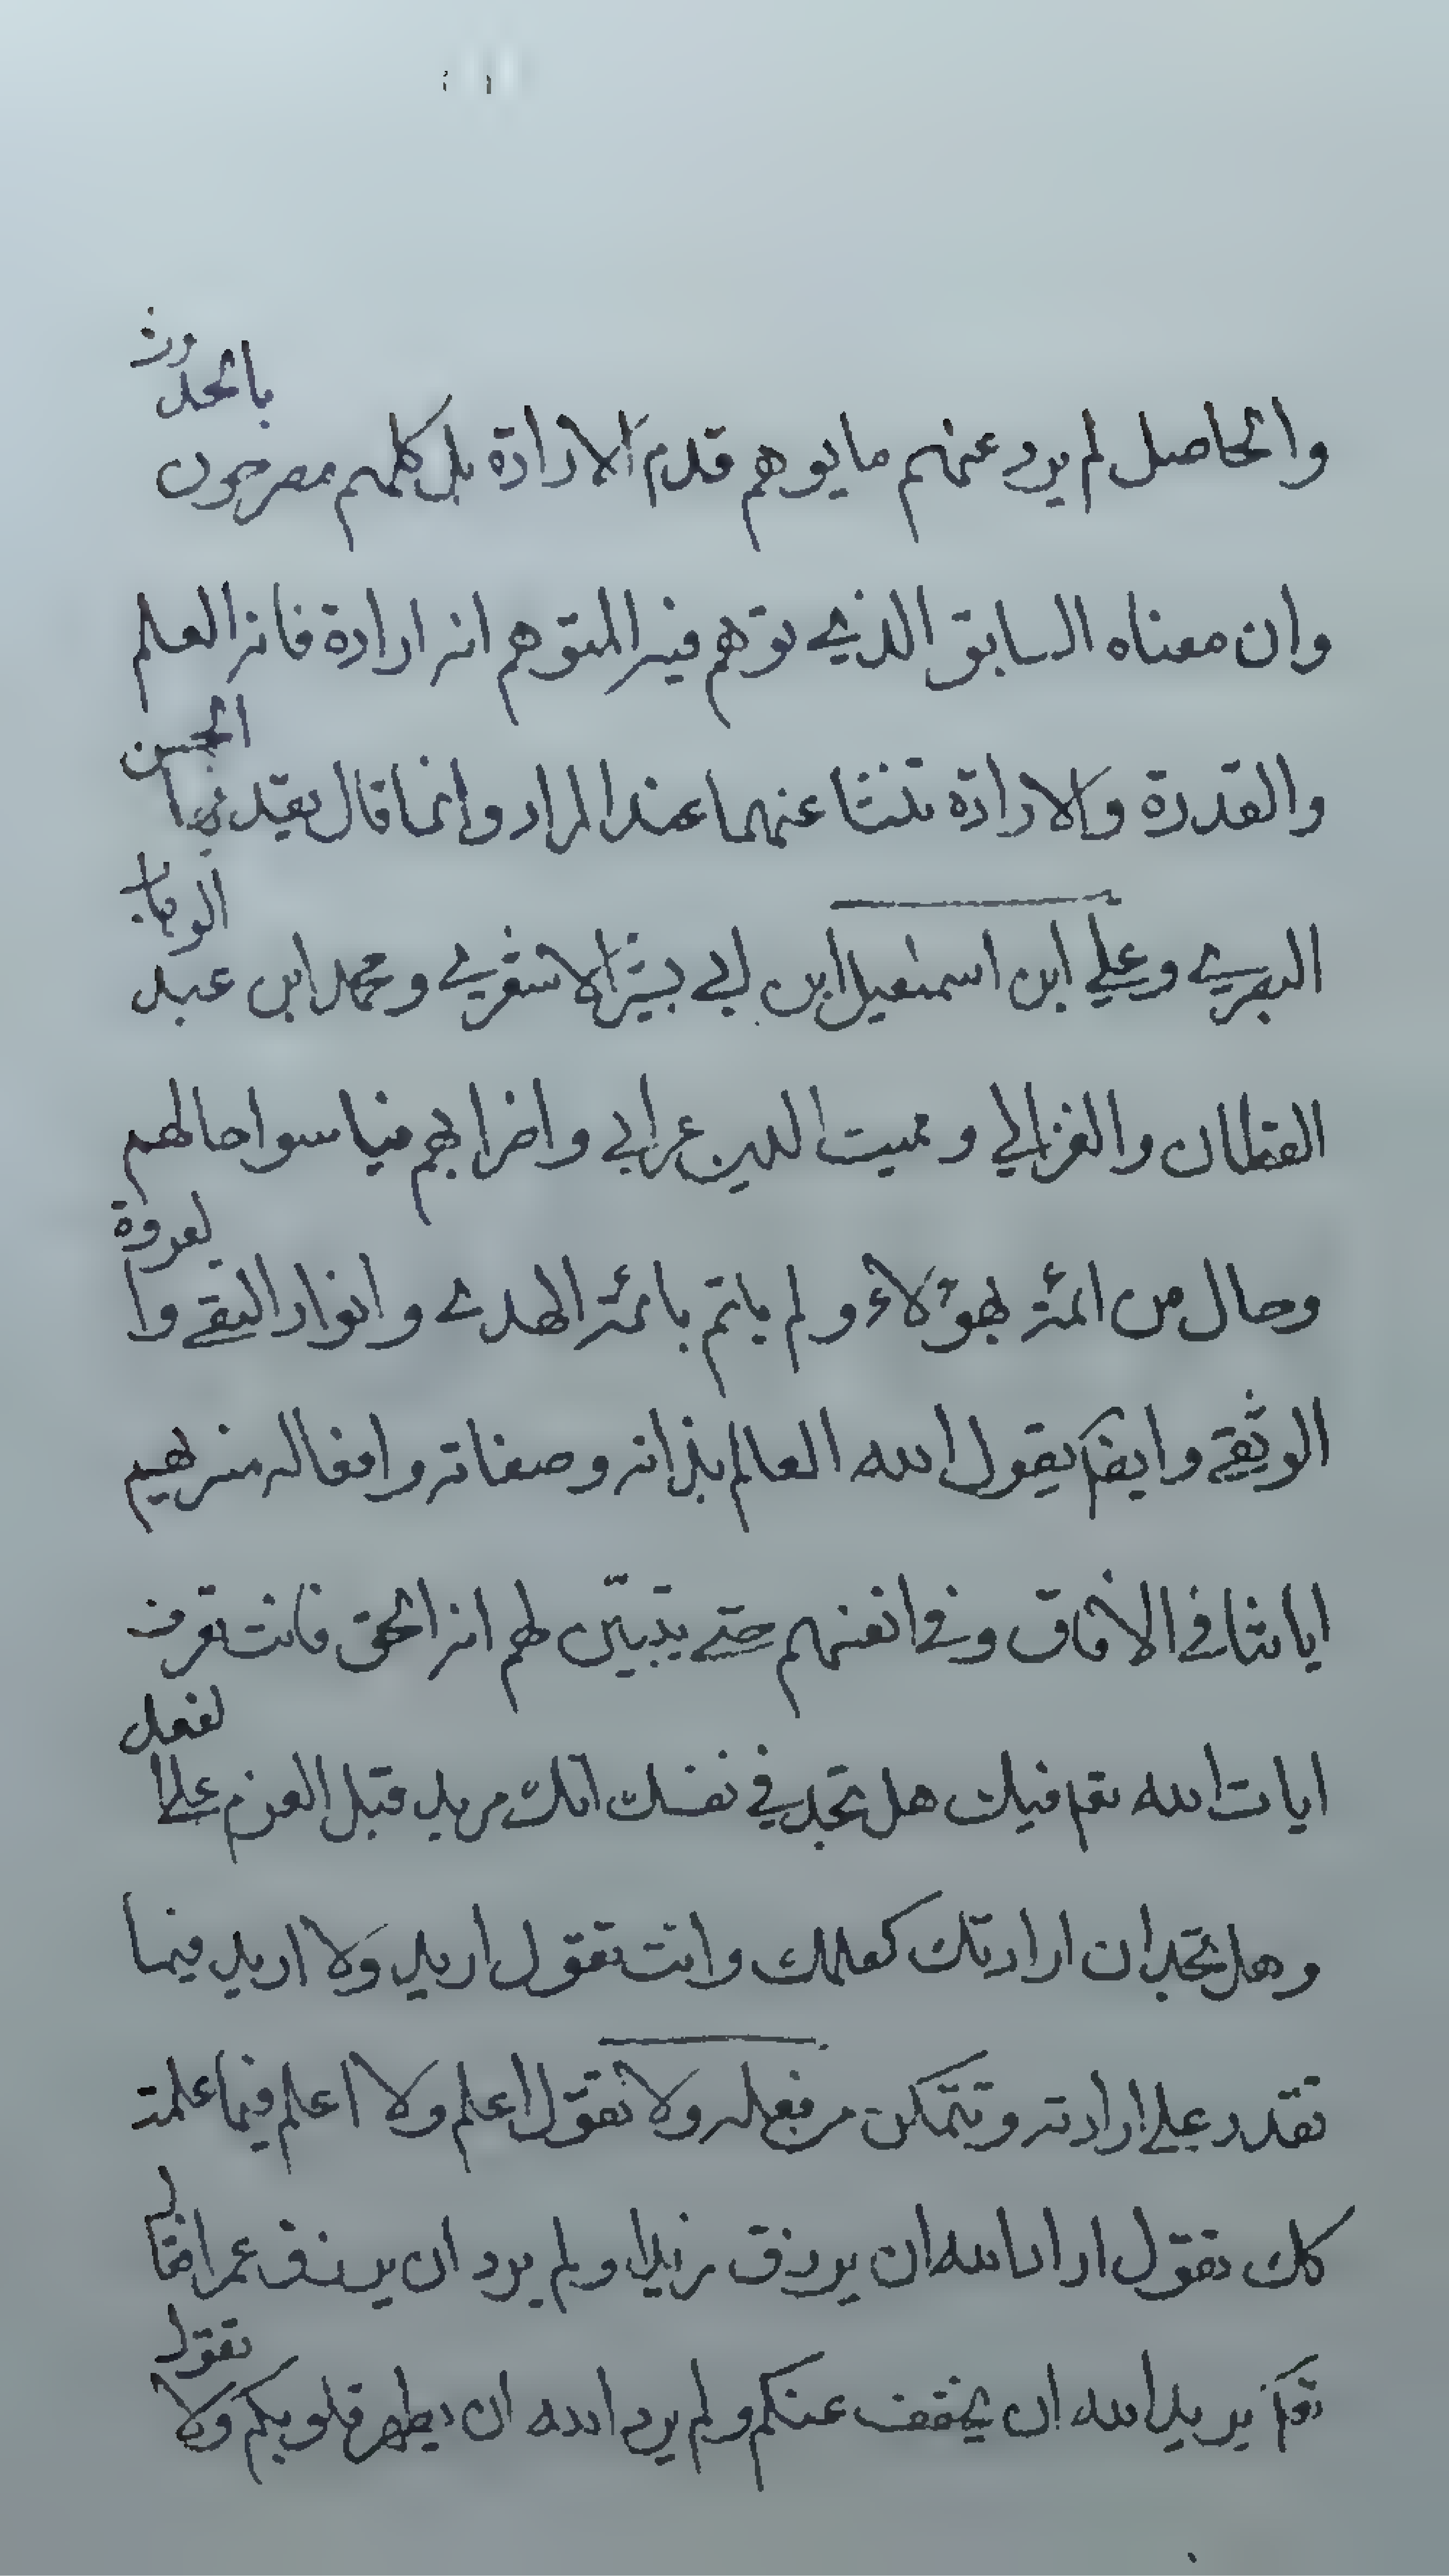 والحاصل لم يرد عنهم ما يوهم قدم الارادة بل كلهم مصرحون بالحدوث
وان معناه السابق الذي توهم فيه المتوهم انه ارادة فانه العلم
والقدرة والارادة تنشا عنهما عند المراد وانما قال بقدمها الحسن
البصري وعلي ابن اسمعيل ابن ابي بشر الاشعري ومحمد ابن عبد الوهاب
القطان والغزالي ومميت الدين عرابي واضرابهم فيا سوا حالهم
وحال من ائتم بهؤلاء ولم ياتم بائمة الهدى وانوار التقى والعروة
الوثقى وايضا يقول الله العالم بذاته وصفاته وافعاله سنريهم
اياتنا في الافاق وفي انفسهم حتى يتبين لهم انه الحق فانت تعرف
ايات الله تعم فيك هل تجد في نفسك انك مريد قبل العزم على الفعل
وهل تجد ان ارادتك كعلمك وانت تقول اريد ولا اريد فيما
تقدر على ارادته وتتمكن من فعله ولا تقول اعلم ولا اعلم فيما علمته
كك تقول اراد الله ان يرزق زيدا ولم يرد ان يرزق عمرا فقال
تعم يريد الله ان يخفف عنكم ولم يرد الله ان يطهر قلوبكم ولا تقول